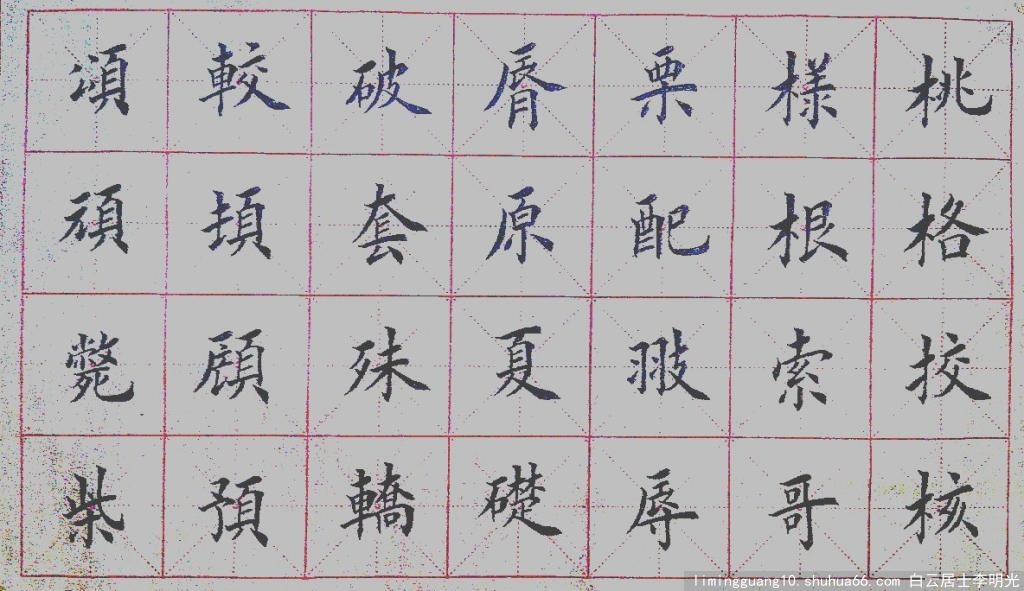 桃格挍核
様根索哥
栗配辱
脣原夏礎
破套殊轎
較頓顧預
頌頑斃柴
limingguang10.shuhua66.com 白云居士李明光